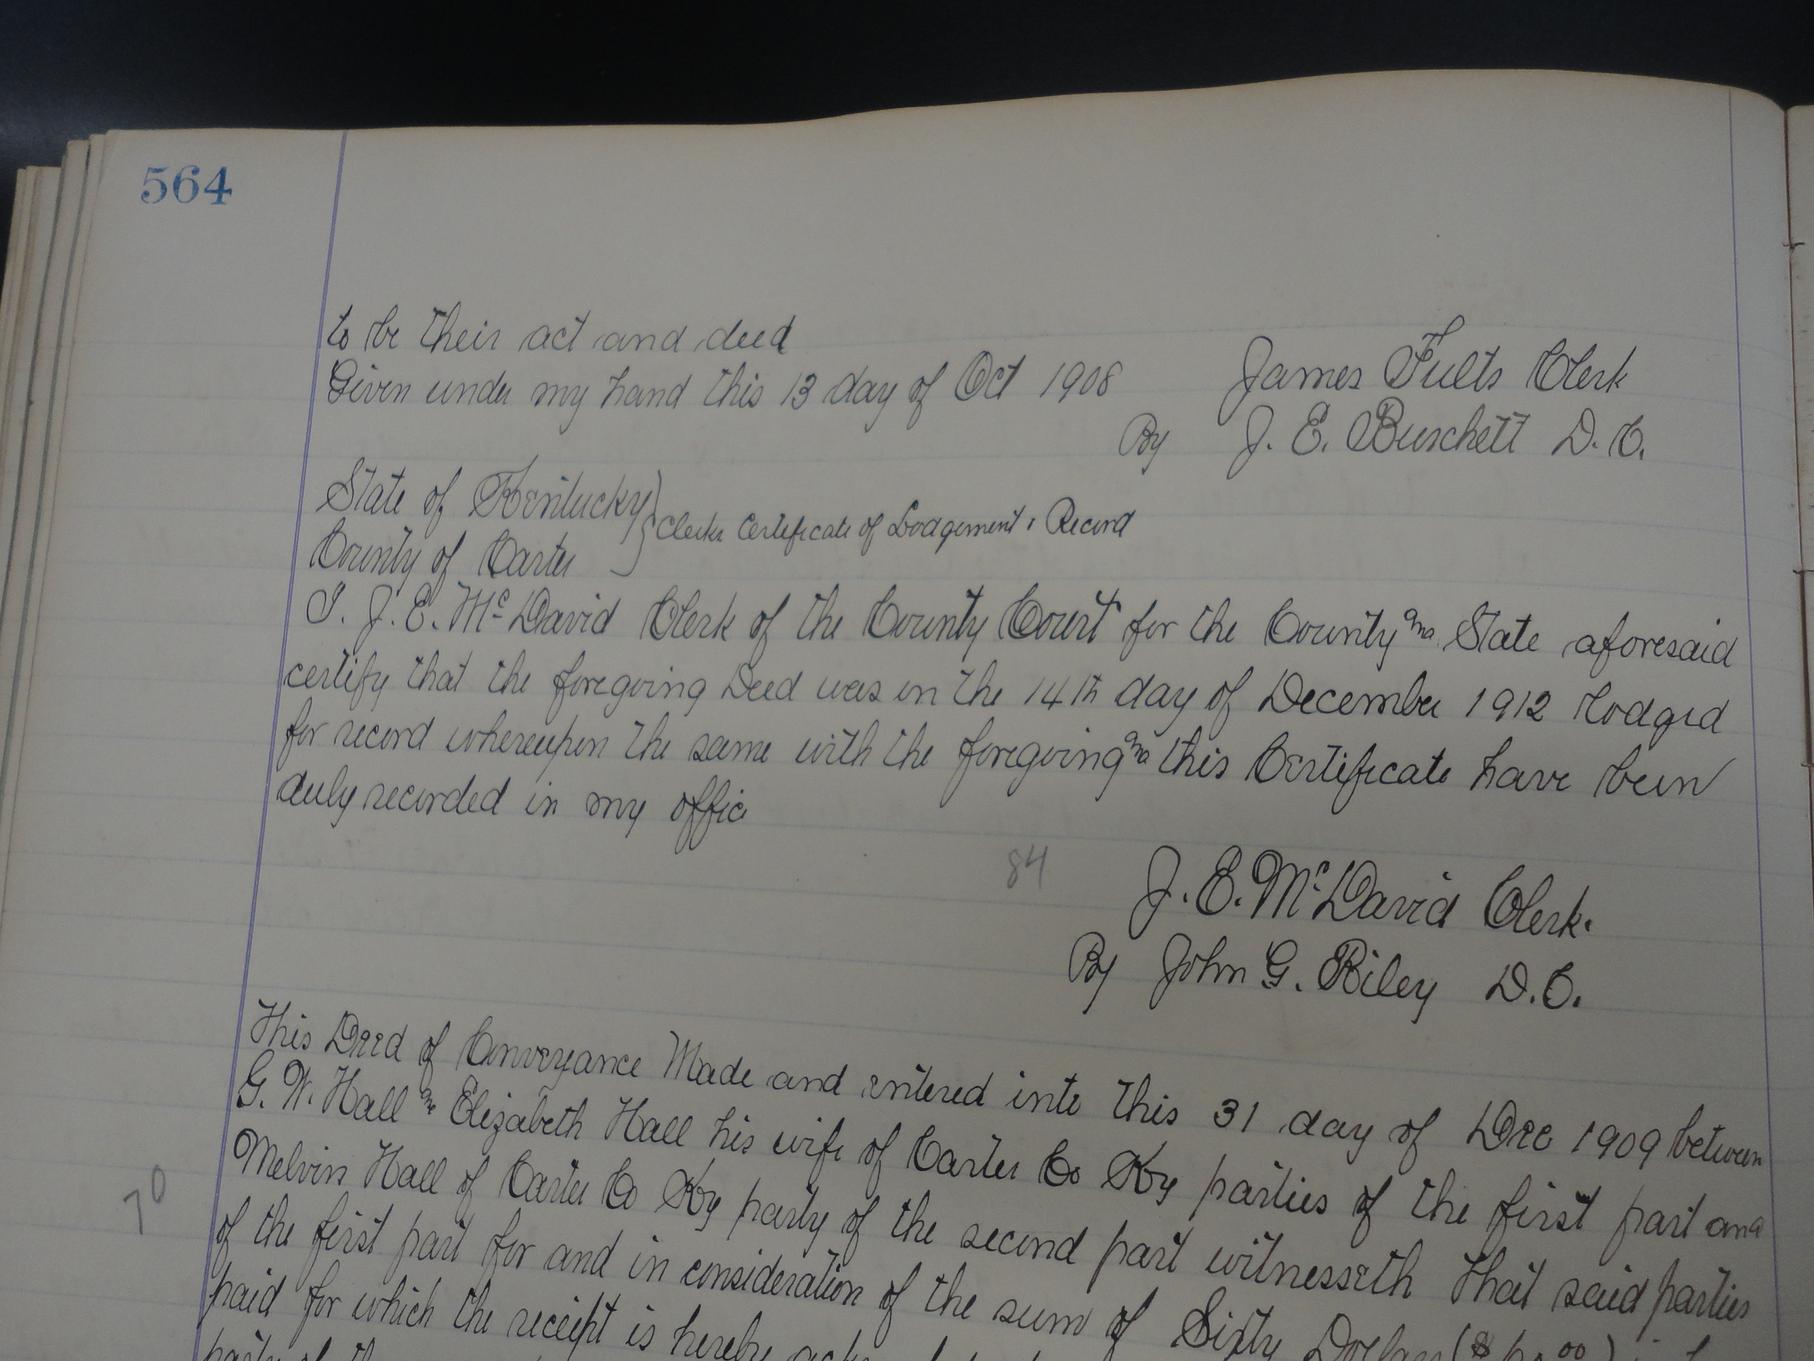 564
to be their act and deed
Given under my hand this 13 day of Oct 1908
James Fults Clerk
By J. E. Burchett D. C.
State of Kentucky
County of Carter
Clerks Certificate of Lodgement & Record
I. J. E. McDavid Clerk of the County Court for the County and State aforesaid
certify that the foregoing Deed was on the 14th day of December 1912 lodged
for record whereupon the same with the foregoing and this Certificate have been
duly recorded in my office
84
J. E. McDavid Clerk.
By John G. Riley D.C.
This Deed of Conveyance Made and entered into this 31 day of Dec 1909 between
G. W. Hall and Elizabeth Hall his wife of Carter Co Ky parties of the first part and
Melvin Hall of Carter Co Ky party of the second part witnesseth That said parties
70
of the first part for and in consideration of the sum of Sixty Dollars
paid for which the receipt is hereby
party of